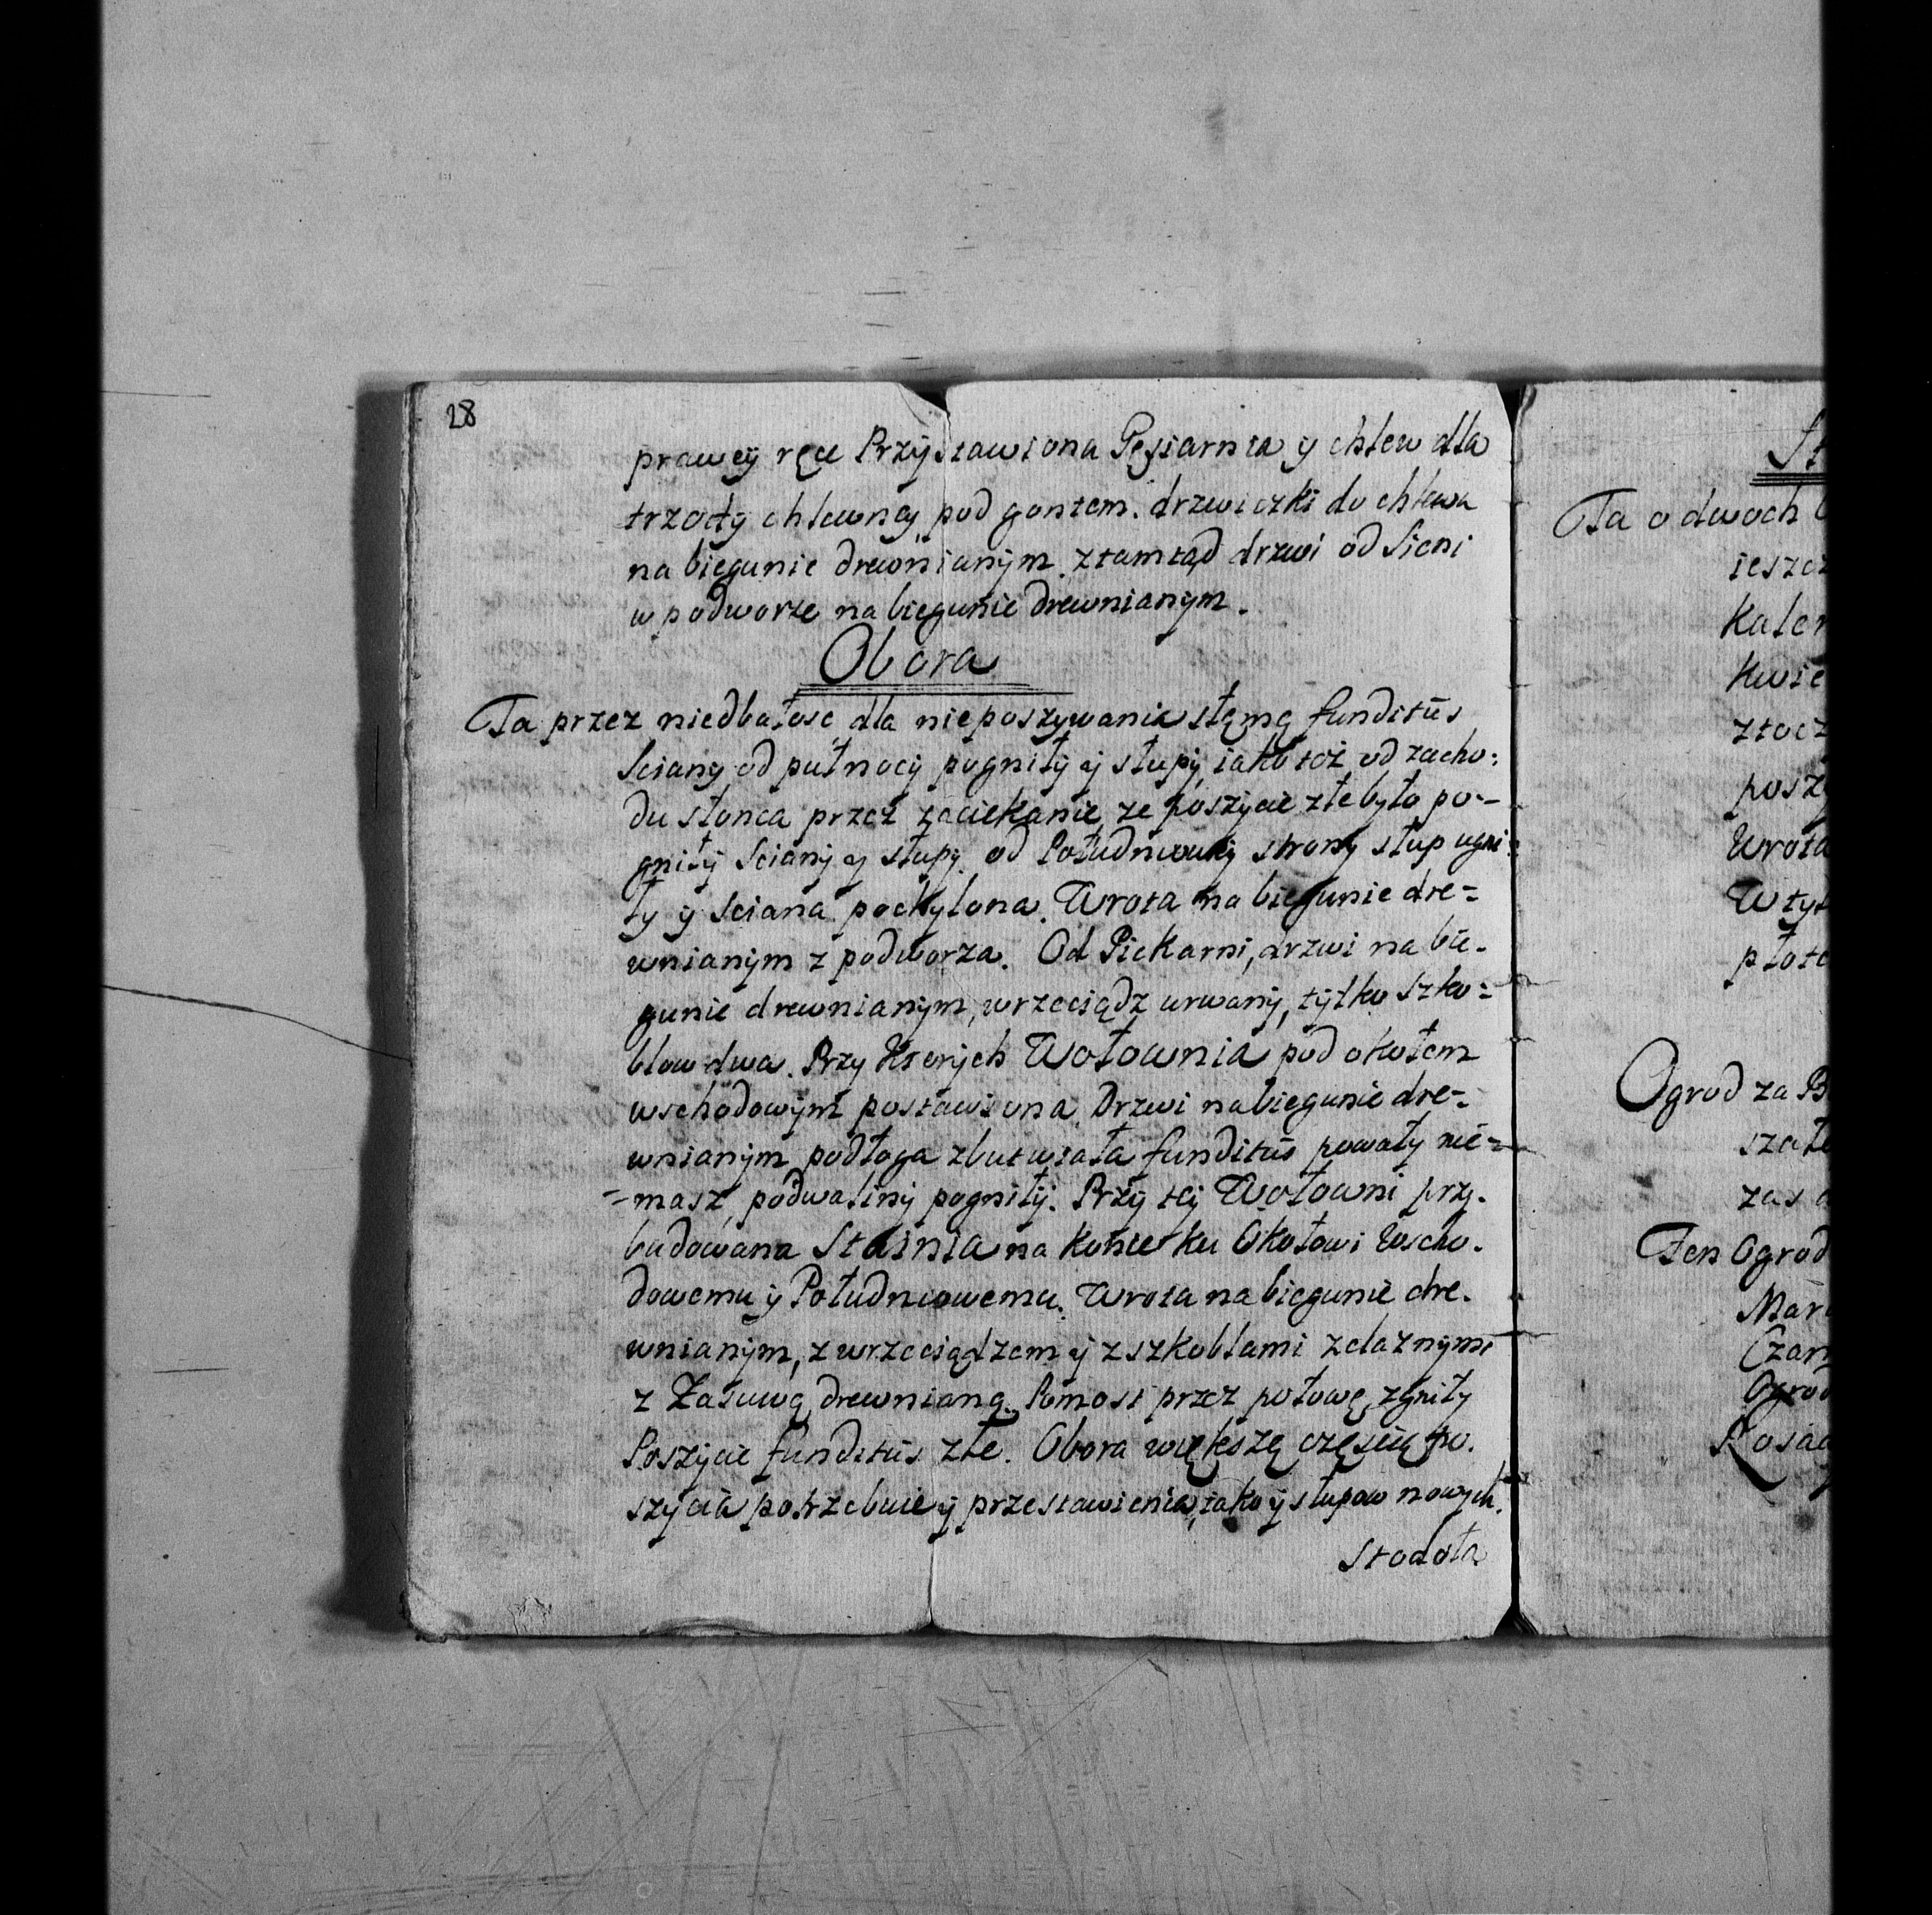 28
prawey ręce Przystawiona Gęsiarnia y chlew dla
trzody chlewney pod gontem. drzwiczki do chlewa
na biegunie drewnianym. ztamtąd drzwi od Sieni
w podworze na biegunie drewnianym.
Obora
Ta przez niedbałosc dla nieposzywania słomą funditus
Sciany od pułnocy pogniły y słupy iako toż od zacho:
du słonca przez zaciekanie, ze poszycie złe było po-
gniły Sciany y słupy. od Południowey strony słup ugni:
ły y sciana pochylona. Wrota na biegunie dre=
wnianym z podworza. Od Piekarni, drzwi na bie-
gunie drewnianym, wrzeciądz urwany, tylko szko=
blow dwa. Przy Ktorych Wołownia pod okołem
wschodowym postawiona Drzwi na biegunie dre=
wnianym podłoga zbutwiała funditus powały nie=
=masz, podwaliny pogniły. Przy tey Wołowni przy-
budowana Stainia na koncu ku Okołowi Wscho-
dowemu y Południowemu. Wrota na biegunie dre-
wnianym, z wrzeciądzem y z szkoblami zelaznymi
z Zasuwą drewnianą. Pomost przez połowę zgniły
Poszycie funditus złe. Obora większą częscią po-
szycia potrzebuie y przestawienia, iako y słupow nowych.
Stodoła
St
Ta o dwoch
ieszcz
Kalen
Kwie
złocz
poszy
Wrota
W tył
płote
Ogrod za B
szałe
zas
Ten Ogrod
Mar
Czarn
Ogrod